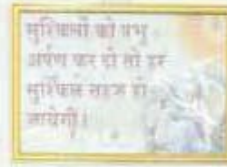 मुश्किलों को प्रभु
अर्पण कर दो तो हर
मुश्किल सहज हो
जायेगी।